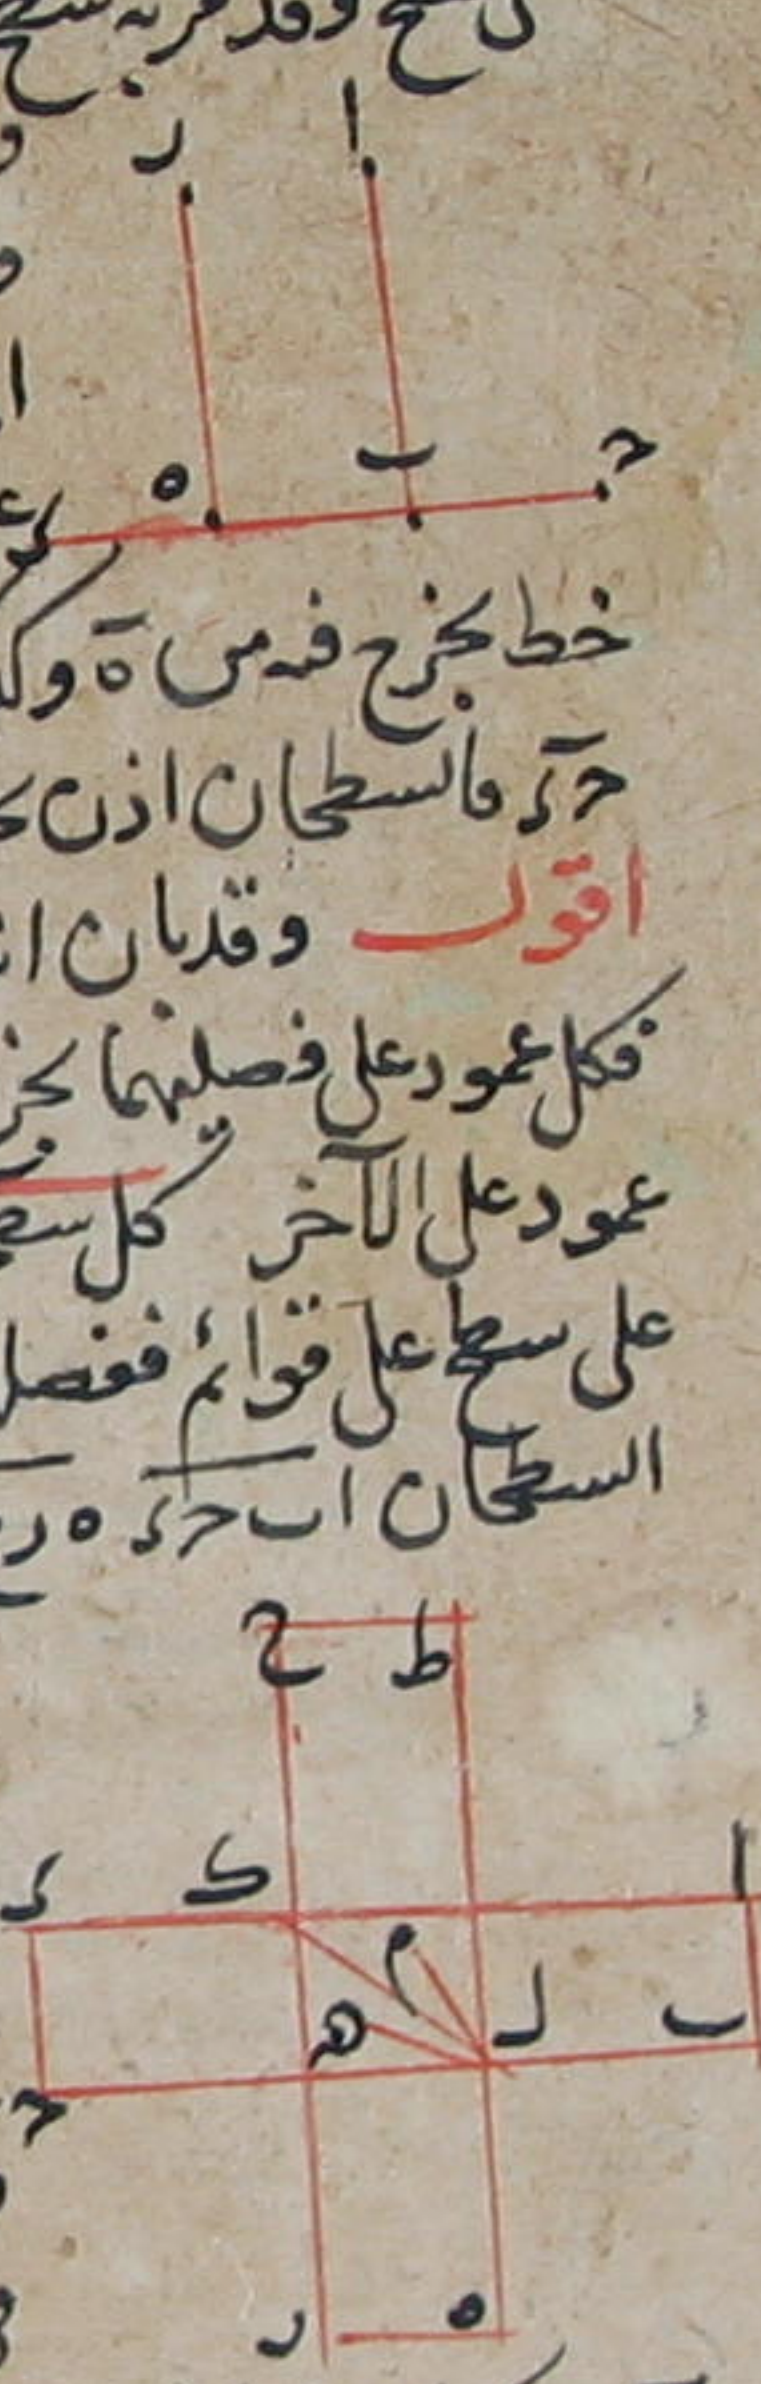 سطح وقد مر به سطح
ا ر
ح ب ه
خط يخرج فيه من ه وكذ
حء فالسطحان اذن
اقول وقد بان ان
فكل عمود على فصليهما يخر
عمود على الآخر كل سط
على سطح على قوائم ففصل
السطحان اب حء ه ر
ط ح
ا ك ء
م
ب ل ھ
ح
ه ر